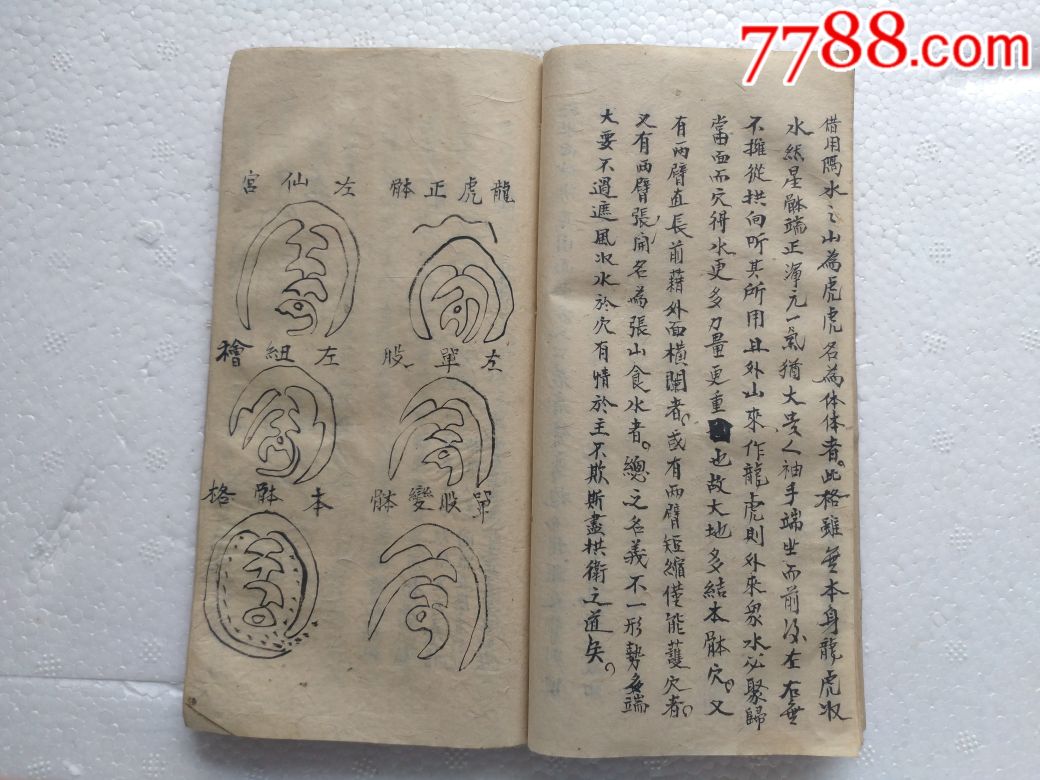 7788.com
借用隔水之山為虎虎名為体体者。此格雖無本身龍虎収
水然星骵端正渾元一氣猶大貴人袖手端坐而前後左右無
不擁從拱向听其所用且外山來作龍虎則外來衆水必聚歸
當面而穴得水更多力量更重也故大地多結本骵穴。又
有两臂直長前藉外面橫闌者。或有两臂短縮僅能蔓穴者。
又有两臂張開名為張山食水者。總之名義不一形勢多端
大要不過遮風収水於穴有情於主不欺斯盡拱衛之道矣。
龍虎正骵
左仙宮
左單股
左紐襘
單股變骵
本骵格